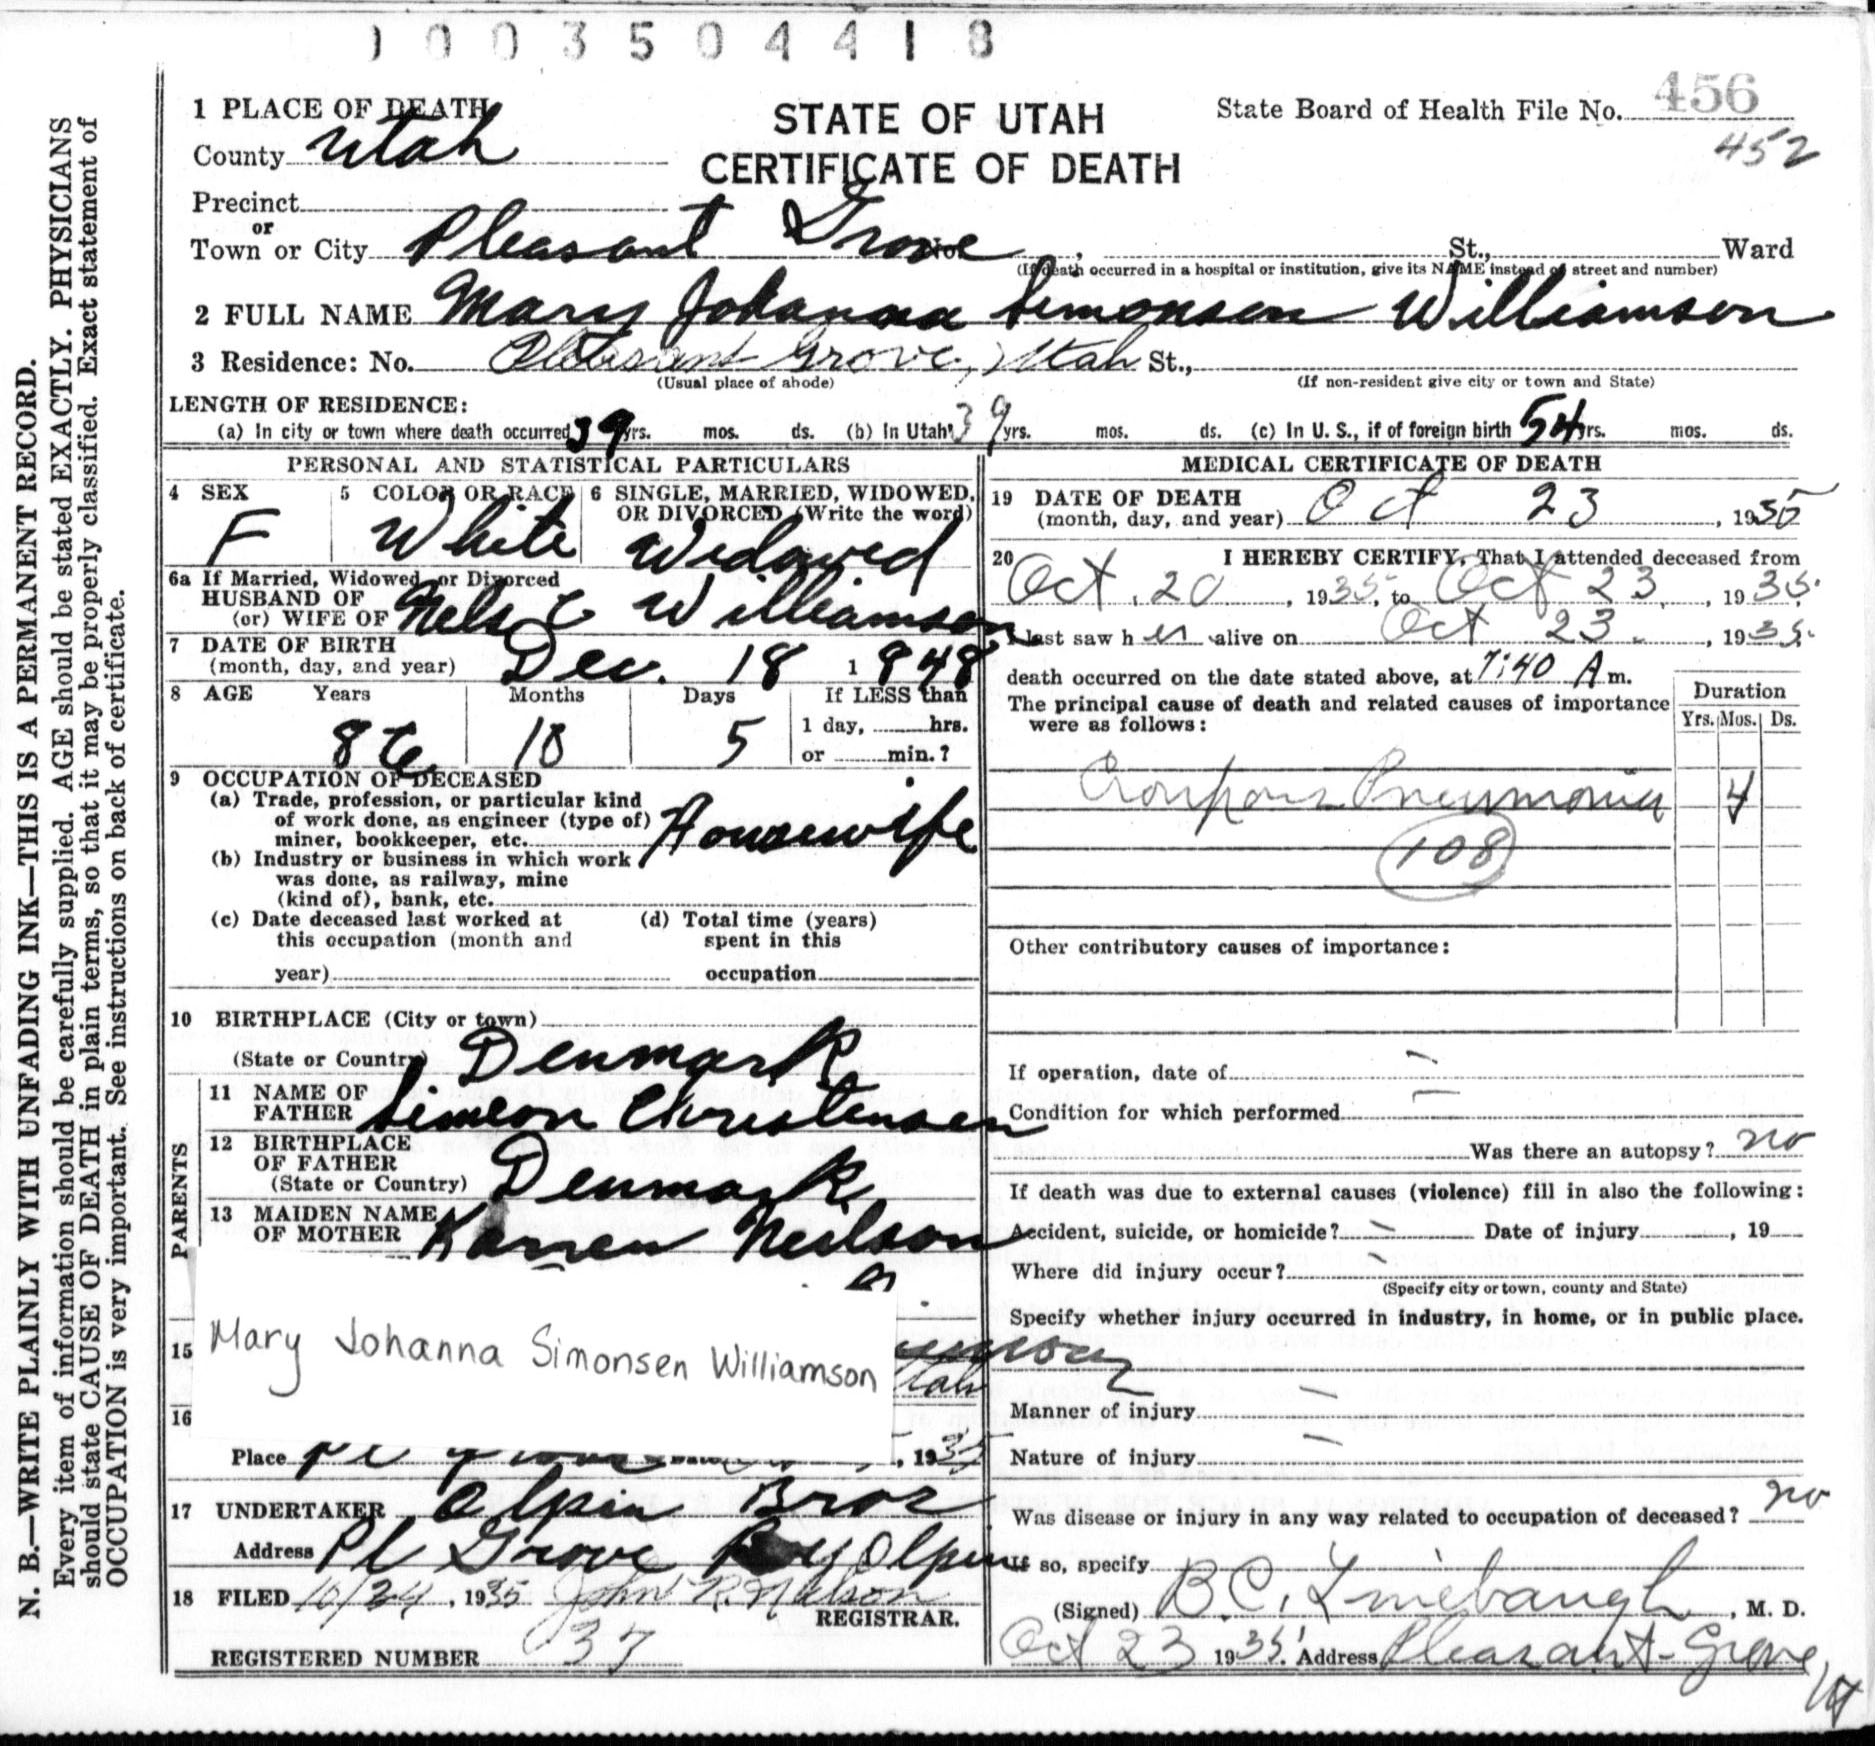 1003504418
1 PLACE OF DEATH
STATE OF UTAH
CERTIFICATE OF DEATH
State Board of Health File No. 456
452
County Utah
Precinct
or
Town or City Pleasant Grove No. , St., Ward
(If death occurred in a hospital or institution, give its NAME instead of street and number)
2 FULL NAME Mary Johanna Simonsen Williamson
3 Residence: No. Pleasant Grove, Utah St.,
(Usual place of abode) (If non-resident give city or town and State)
LENGTH OF RESIDENCE:
(a) In city or town where death occurred 39 yrs. mos. ds. (b) In Utah 39 yrs. mos. ds. (c) In U. S., if of foreign birth 54 yrs. mos. ds.
PERSONAL AND STATISTICAL PARTICULARS
4 SEX
F
5 COLOR OR RACE
White
6 SINGLE, MARRIED, WIDOWED,
OR DIVORCED (Write the word)
Widowed
6a If Married, Widowed or Divorced
HUSBAND OF
(or) WIFE OF Nels C Williamson
7 DATE OF BIRTH
(month, day, and year) Dec. 18 1848
8 AGE Years Months Days If LESS than
86 10 5 1 day, hrs.
or min.?
9 OCCUPATION OF DECEASED
(a) Trade, profession, or particular kind
of work done, as engineer (type of)
miner, bookkeeper, etc. Housewife
(b) Industry or business in which work
was done, as railway, mine
(kind of), bank, etc.
(c) Date deceased last worked at
this occupation (month and
year)
(d) Total time (years)
spent in this
occupation
10 BIRTHPLACE (City or town)
(State or Country) Denmark
PARENTS
11 NAME OF
FATHER Simeon Christensen
12 BIRTHPLACE
OF FATHER
(State or Country) Denmark
13 MAIDEN NAME
OF MOTHER Karren Neilson
Mary Johanna Simonsen Williamson
15
16
Place Pl Grove , 1935
17 UNDERTAKER Olpin Bros
Address Pl Grove Roy Olpin
18 FILED 10/24, 1935 John R. Nelson
REGISTRAR.
REGISTERED NUMBER 37
MEDICAL CERTIFICATE OF DEATH
19 DATE OF DEATH
(month, day, and year) Oct 23, 1935
20 I HEREBY CERTIFY, That I attended deceased from
Oct. 20, 1935, to Oct 23, 1935.
I last saw her alive on Oct 23, 1935.
death occurred on the date stated above, at 7:40 A m.
The principal cause of death and related causes of importance
were as follows:
Duration
Yrs. Mos. Ds.
Croupous Pneumonia 4
108
Other contributory causes of importance:
If operation, date of –
Condition for which performed –
Was there an autopsy? no
If death was due to external causes (violence) fill in also the following:
Accident, suicide, or homicide? – Date of injury , 19
Where did injury occur? –
(Specify city or town, county and State)
Specify whether injury occurred in industry, in home, or in public place.
Manner of injury –
Nature of injury –
Was disease or injury in any way related to occupation of deceased? no
If so, specify
(Signed) B.C. Linebaugh, M. D.
Oct 23 1935. Address Pleasant Grove
N. B.—WRITE PLAINLY WITH UNFADING INK—THIS IS A PERMANENT RECORD.
Every item of information should be carefully supplied. AGE should be stated EXACTLY. PHYSICIANS
should state CAUSE OF DEATH in plain terms, so that it may be properly classified. Exact statement of
OCCUPATION is very important. See instructions on back of certificate.